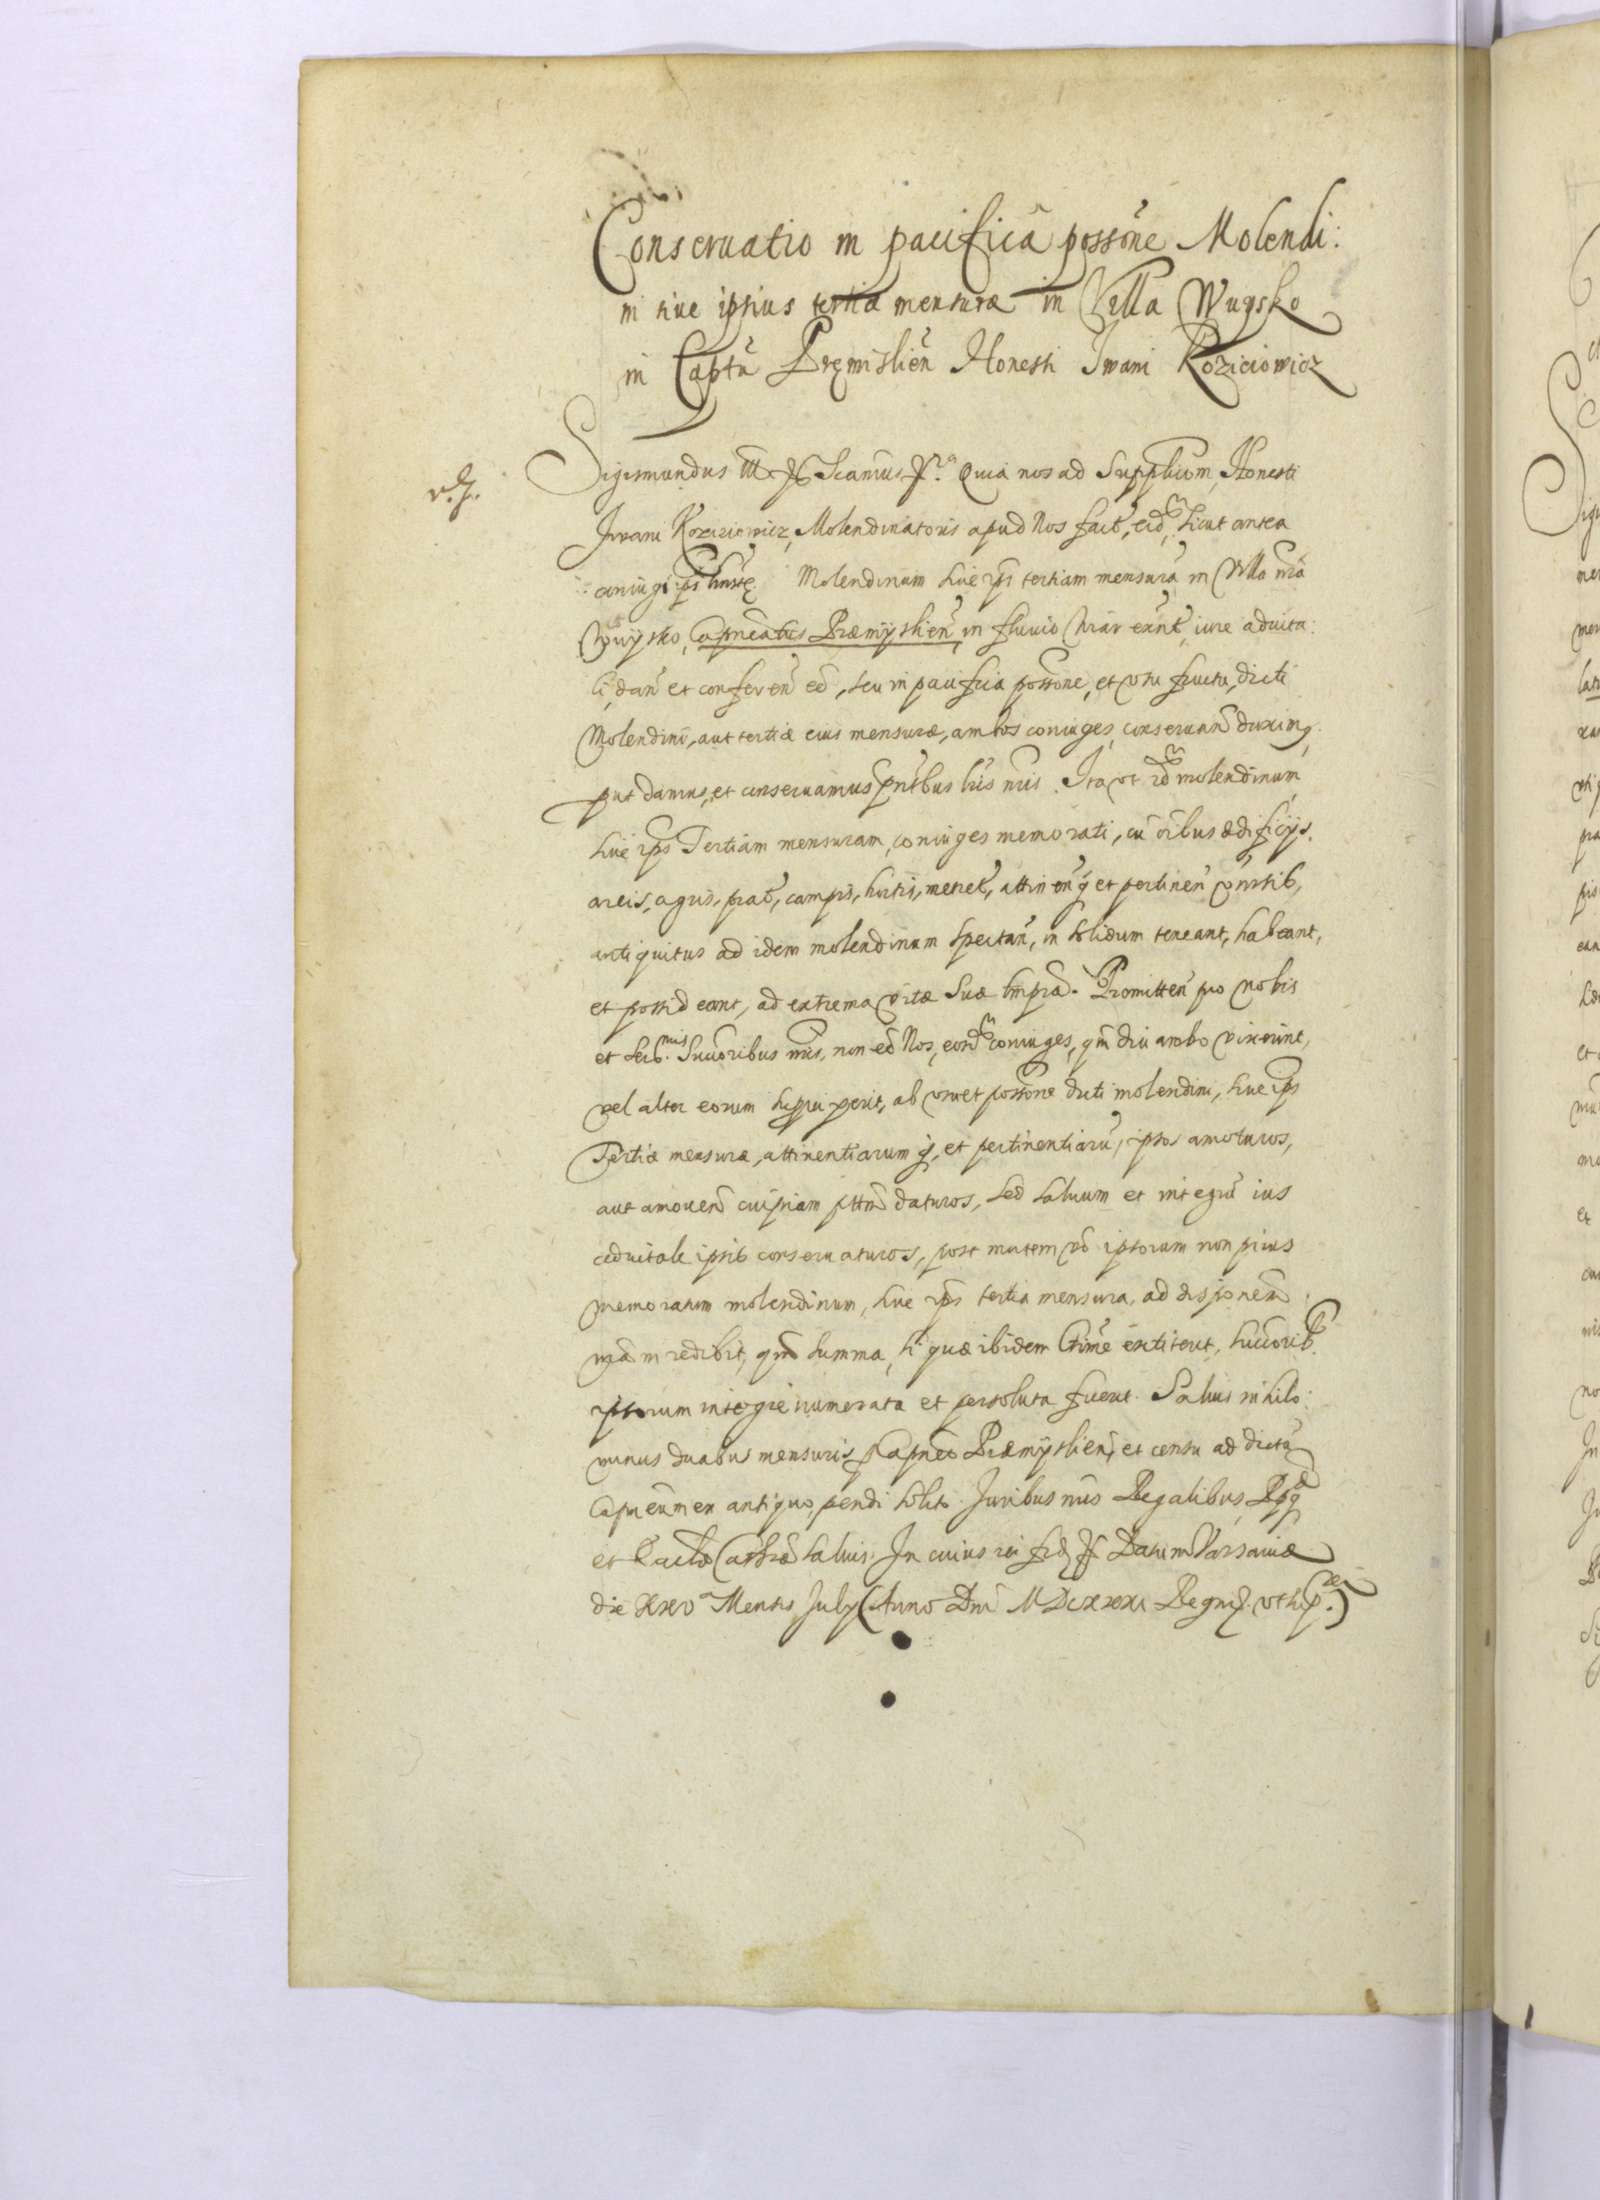 Conseruatio in pacificã possõne Molendi:
ni siue ipsius tertiæ mensuræ in Villa Wuysko
in Captũ Præmislieñ Honesti Iwani Koziciowicz
Sigismundus III Quia nos ad Supplicom Honesti
Iwani Koziciowicz, Molendinatoris apud Nos fact, eid sicut antea
coniugi Molendinum siue ips tertiam mensurã in Villa nrã
Wuysko, Capneatus Præmyslieñ in fluuio Wiar exñt, iure aduita:
li, dañ et confereñ eẽ, seu in pacifica possone, et usu fructu, dicti
Molendini, aut tertiæ eius mensuræ, ambos coniuges conseruañ duxim,
put damus, et conseruamus pñtbus lris nris. Ita ut id molendinum
siue ips Tertiam mensuram, coniuges memorati, cũ oibus ædificijs,
areis, agris, prat, campis, hortis, meret, attinenq et pertineñ vnirsib,
antiquitus ad idem molendinum spectañ, in solidum teneant, habeant,
et possideant, ad extrema vitæ suæ tmpra. Promitteñ pro nobis
et Ser nis Succoribus nris, non eẽ Nos, eosd coniuges, qm diu ambo vixerint,
vel alter eorum supu xerit, ab usu et possone dicti molendini, siue ips
Tertiæ mensuræ, attinentiarum q, et pertinentiarũ, ipsos amoturos,
aut amoueñ cuipiam pttem daturos, sed saluum et integrũ ius
aduitale ipsis conseruaturos, post mortem vo ipsorum non prius
memoratum molendinum, siue ips tertia mensura, ad disponeñ
nram redibit, qm summa, si quæ ibidem Ctime extiterit, succorib
ipsorum integre numerata et persoluta fuerit. Saluis nihilo:
minus duabus mensuris p Capneo Præmyslieñ, et censu ad dictũ
Capneum ex antiquo, pendi solito. Iuribus nris Regalibus, Rpq
et Eccliæ Cathræ saluis. In cuius rei fid Datum Varsauiæ
die XXV Mensis July Anno Dni MDCXXXI Regn ut sup